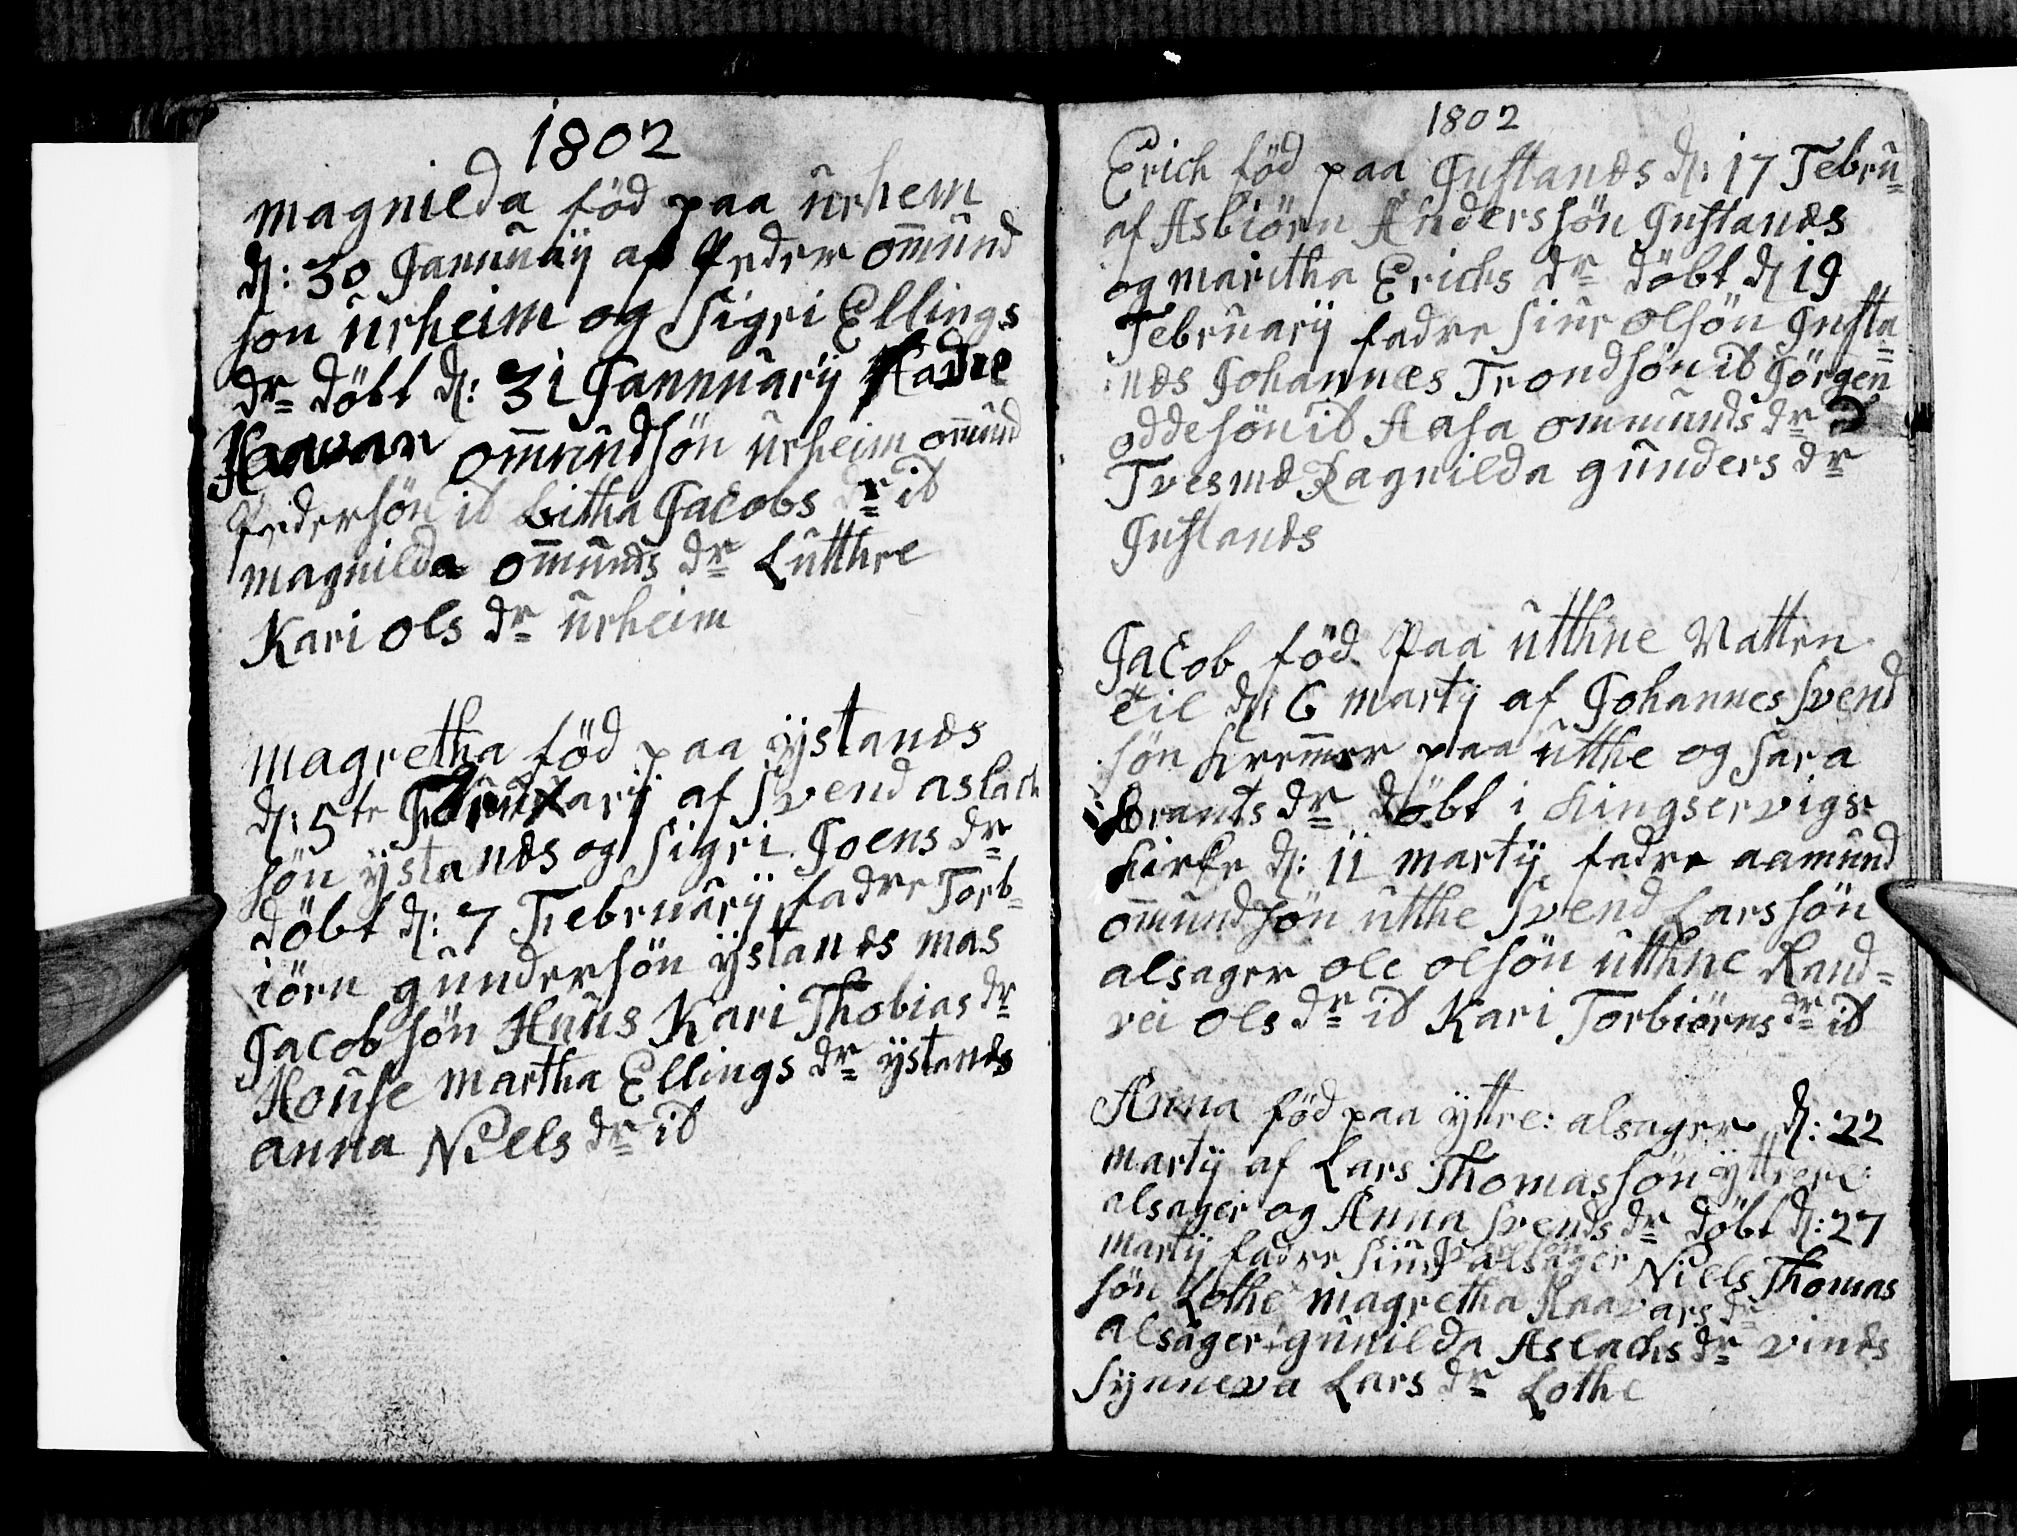 1802
magnilda föd paa ürhem
dj: 30 Januuäÿ af Peder om̄ünd
son ürheim og Sigri Ellings
dr döbt dj: 31 Jannuäry fadre
Havar om̄undsön ürheim om̄ünd
Pedersön id britha Jacobs dr id
magnilda om̄unds dr Lutthre
Kari Ols dr ürheim
magretha föd paa ÿstands
dj: 5te arij af Svend aslach
sön ÿstands og Sigri Joens dr
döbt dj: 7 Februärÿ fadre Torb-
iörn gündersön ÿstands mas
Jacobsön Hüüs Kari Thobias dr
Housе martha Ellings dr ÿstands
anna Niels dr id
1802
Erich föd paa Jnstands dj: 17 Febru-
af Asbiörn Anderssön Jnstands
og maritha Erichs dr döbt dj 19
Februarÿ fadre Siur olsön Jnsta
nds Johannes Trondsön id Jörgen
oddesön id Aasa ommunds dr
Tvesme Ragnilda günders dr
Jnstands
Jacob föd Paa ütthne Natten
til dj: 6 martÿ af Johannes Svend
sön Krem̄er paa ütthe og Sara
brants dr döbt i Kingservigs
Kirke dj: 11 martÿ fadre aamund
om̄undsön ütthe Svend Larssön
alsager ole olsön ütthne Rand-
vei ols dr id Kari Torbiörns dr id
Anna föd paa ÿttre: alsager dj: 22
martÿ af Lars Thomassön ÿttrere:
alsager og Anna Svends dr döbt dj: 27
martÿ fadre Siur Jvarsön alsager Niels Thomas
sön Lothe magretha Haavars dr
alsager günilda Aslachs dr vinds
Sÿnneva Lars dr Lothe